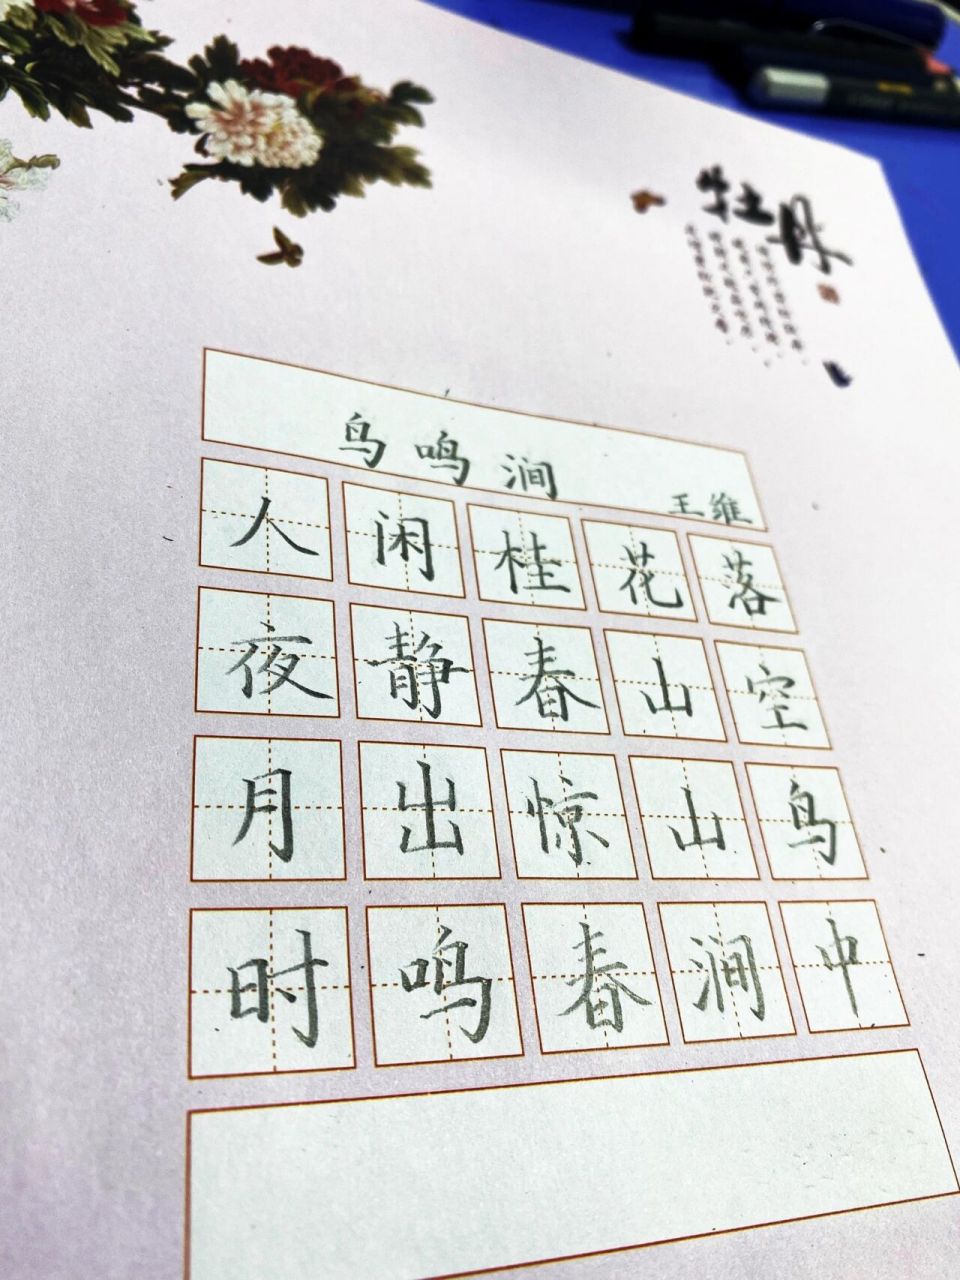 牡丹
鸟鸣涧
王维
人闲桂花落
夜静春山空
月出惊山鸟
时鸣春涧中